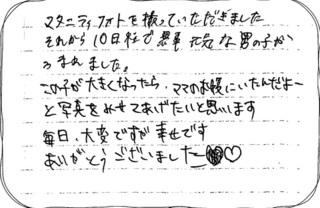 マタニティフォトを撮っていただきました
それから10日程で 元気な男の子が
うまれました。
この子が大きくなったら、ママのお腹にいたんだよー
と写真をみせてあげたいと思います
毎日、大変ですが幸せです
ありがとうございました♡